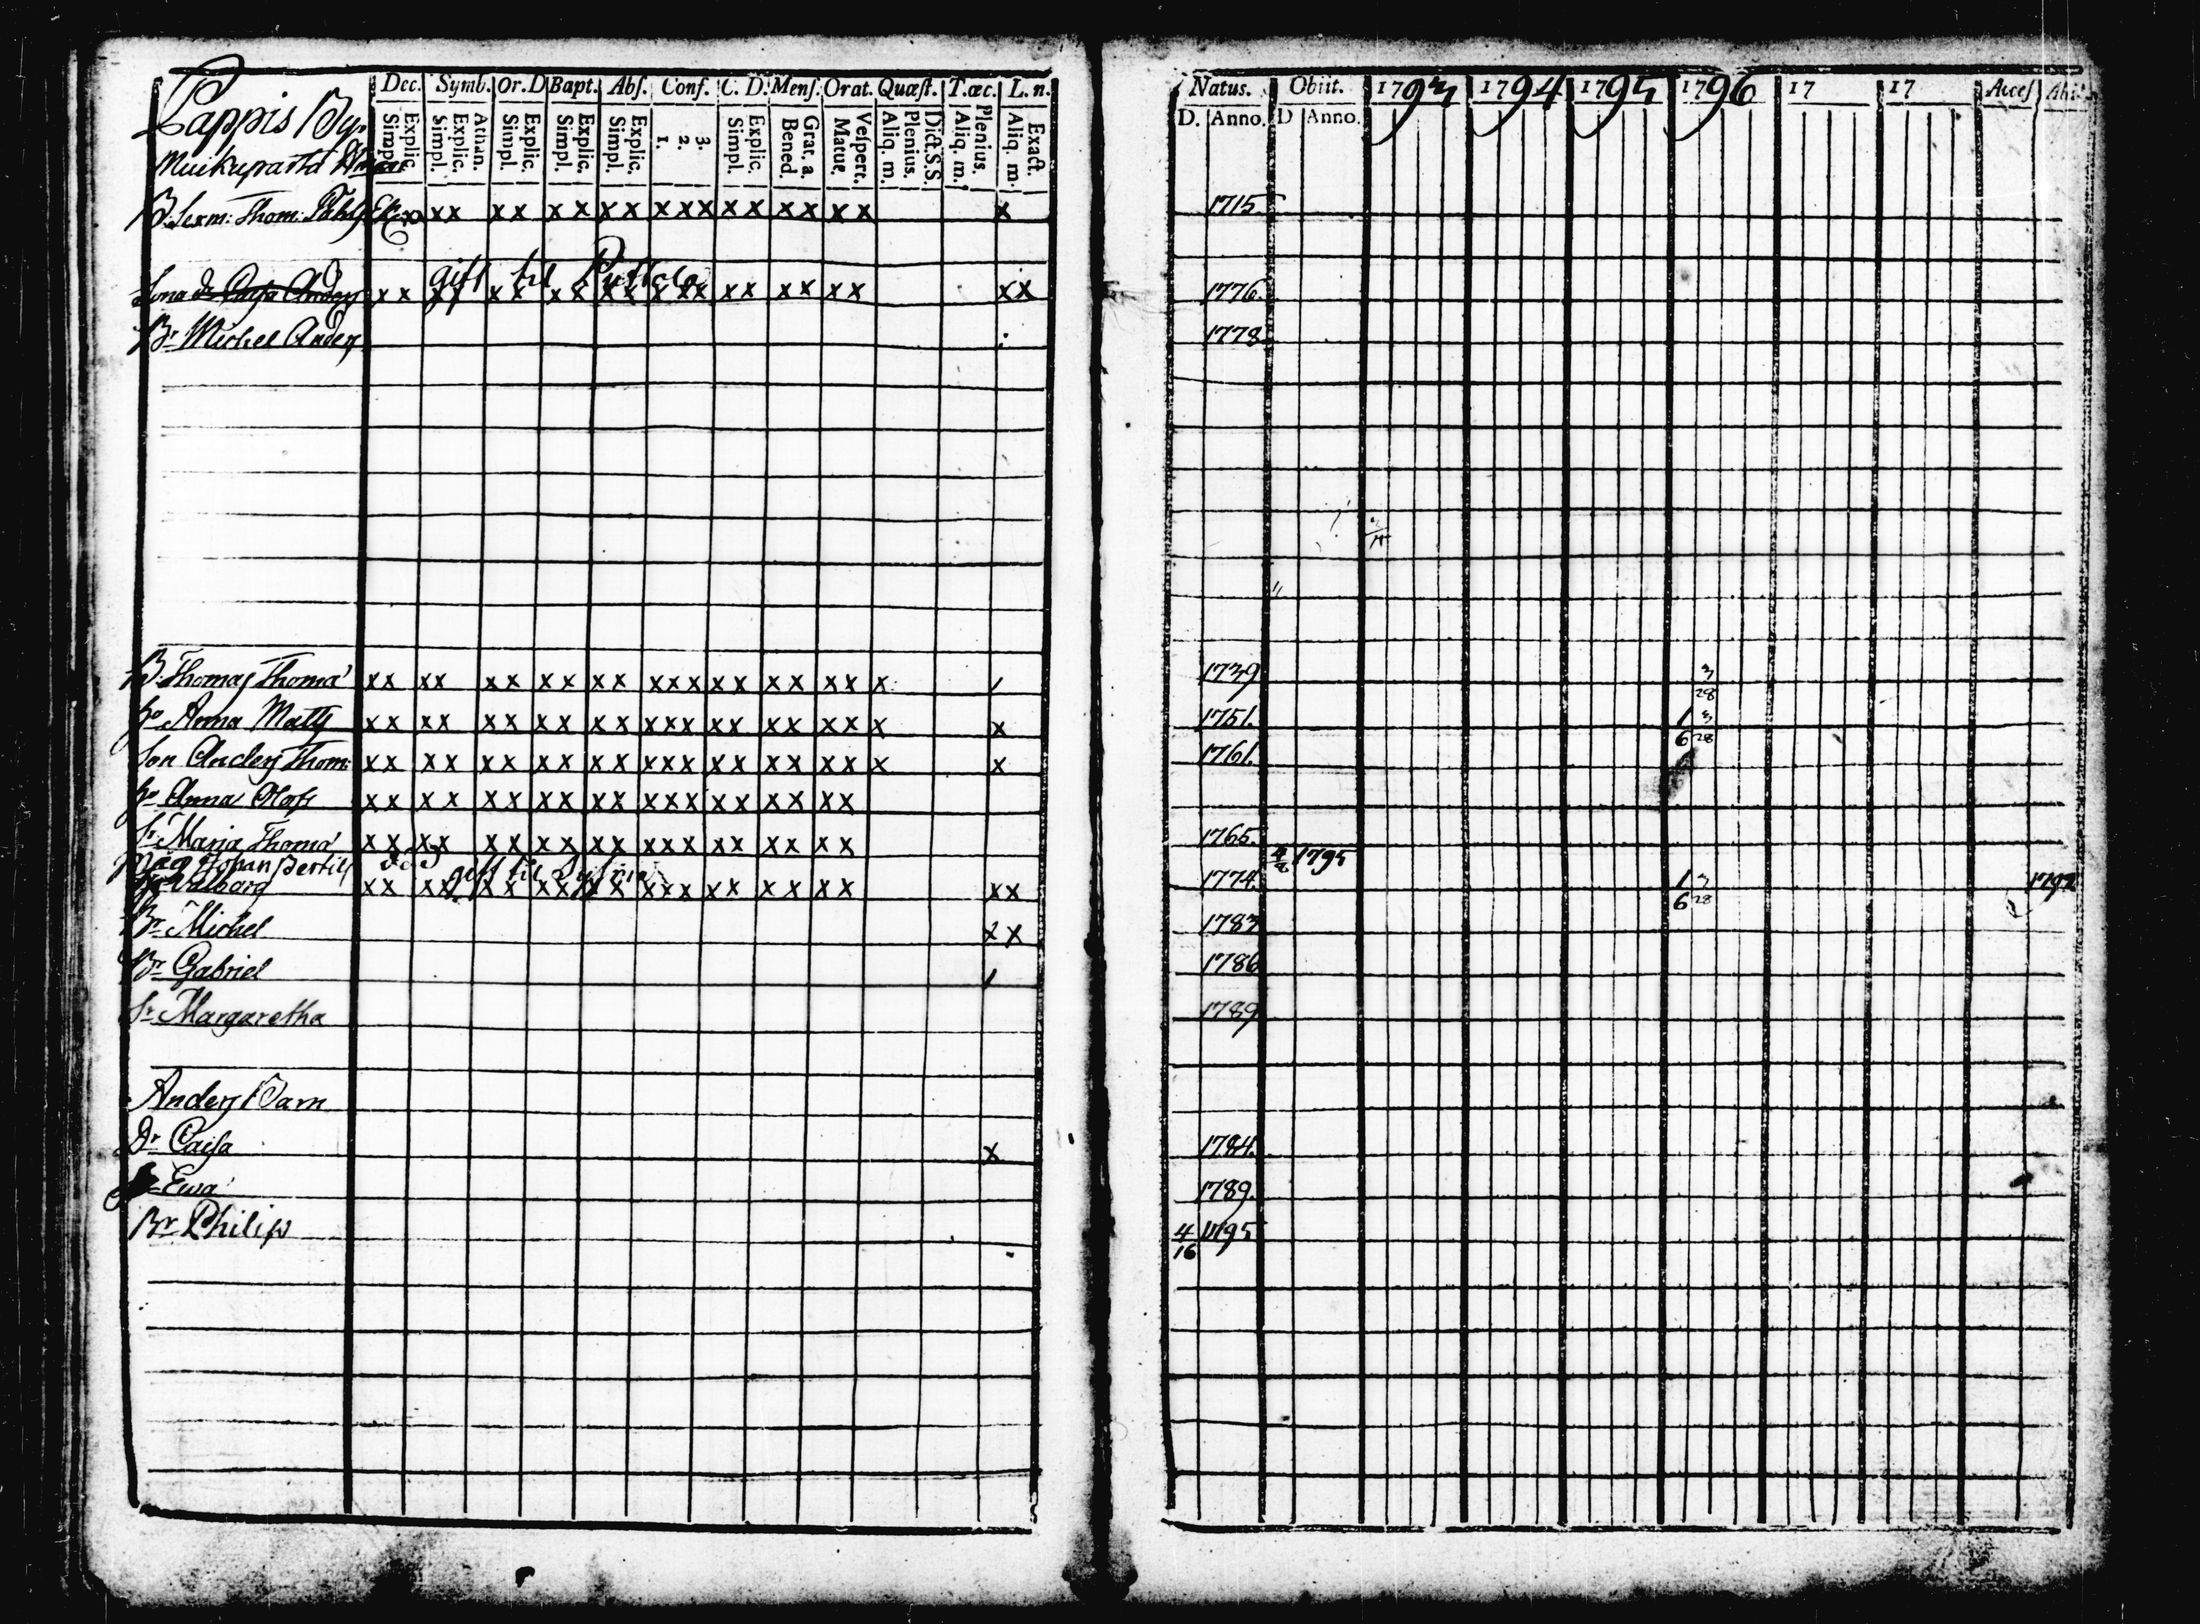 Lappis By.
Dec. Symb. Or. D Bapt. Abſ. Conf. C. D. Menſ. Orat. Quæſt. T. œc. L. n.
Explic. Simpl. Athan. Explic. Simpl. Explic. Simpl. Explic. Simpl. Explic. Simpl. 3. 2. 1. Explic. Simpl. Grat. a. Bened. Veſpert. Matut. Dict. S.S. Plenius. Aliq. m. Plenius. Aliq. m. Exact. Aliq. m.
B. Sexm: Thom: x xx xx xx xx xxx xx xx xx x
gift til
Lona Dr Caisa Anders xx xx xx xx xx xxx xx xx xx xx
Br Michel Anders
B. Thomas Thoma xx xx xx xx xx xxx xx xx xx x /
Hu Anna Matts xx xx xx xx xx xxx xx xx xx x x
Son Anders Thom: xx xx xx xx xx xxx xx xx xx x x
Hu Anna Olofs xx xx xx xx xx xxx xx xx xx
Sr Maria Thoma xx xx xx xx xx xxx xx xx xx
Mag Johan Bertils död gift til
Walborg xx xx xx xx xx xxx xx xx xx xx
Br Michel xx
Br Gabriel /
Sr Margaretha
Anders Barn
Dr Caisa x
Ewa
Br Philip
Natus. Obiit. 1793 1794 1795 1796 17 17 Acceſ Abi
D. Anno. D Anno.
1715
1776.
1778
1739 3/28
1751. 1/6 3/28
1761.
1765.
4/8 1795
1774. 1/6 3/28 1797
1783
1786
1789
1784.
1789.
4/16 1795